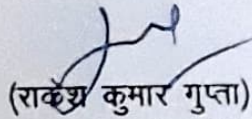 (राकेश कुमार गुप्ता)